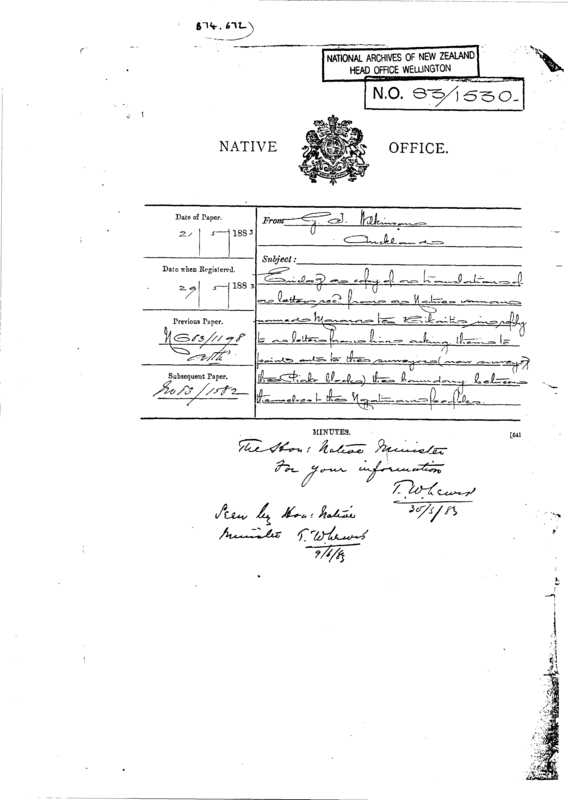 874.672
NATIONAL ARCHIVES OF NEW ZEALAND
HEAD OFFICE WELLINGTON
N.O. 83/1530
NATIVE OFFICE.
Date of Paper.
21 5 1883
From G. T. Wilkinson
Auckland
Subject:
Enclosg a copy of a translation of
a letter recd from a Native woman
named in reply
to a letter from him asking them to
point out to the surveyors (now surveyg
the blocks) the boundary between
themselves & the people.
Date when Registered.
29 5 1883
Previous Paper.
83/1198
Subsequent Paper.
No 83/1582
MINUTES.
[641
The Hon: Native Minister
For your information
T. W. Lewis
30/5/83
Seen by Hon: Native
Minister T. W. Lewis
9/6/83